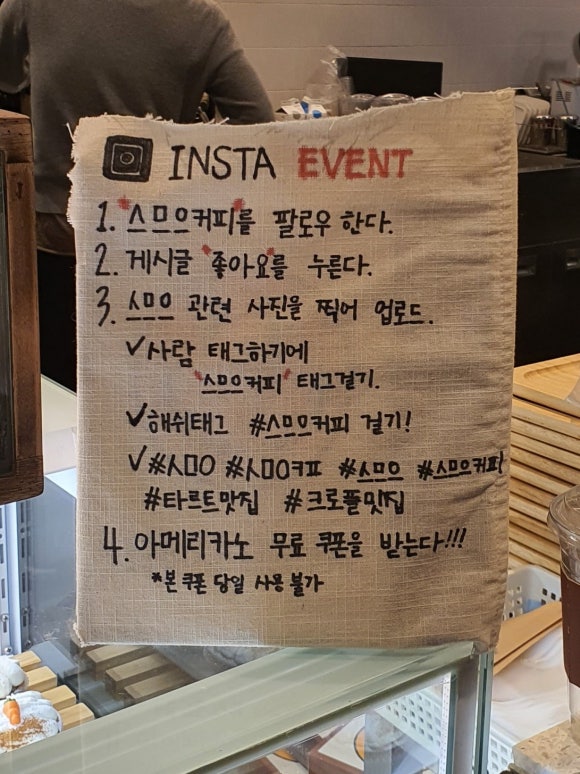 INSTA EVENT
1. "스므으커피"를 팔로우 한다.
2. 게시글 "좋아요"를 누른다.
3. 스므으 관련 사진을 찍어 업로드.
✓사람 태그하기에
"스므으커피" 태그걸기.
✓해쉬태그 #스므으커피 걸기!
✓#ㅅㅁㅇ #ㅅㅁㅇㅋㅍ #스므으 #스므으커피
#타르트맛집 #크로플맛집
4. 아메리카노 무료 쿠폰을 받는다!!!
*본 쿠폰 당일 사용 불가